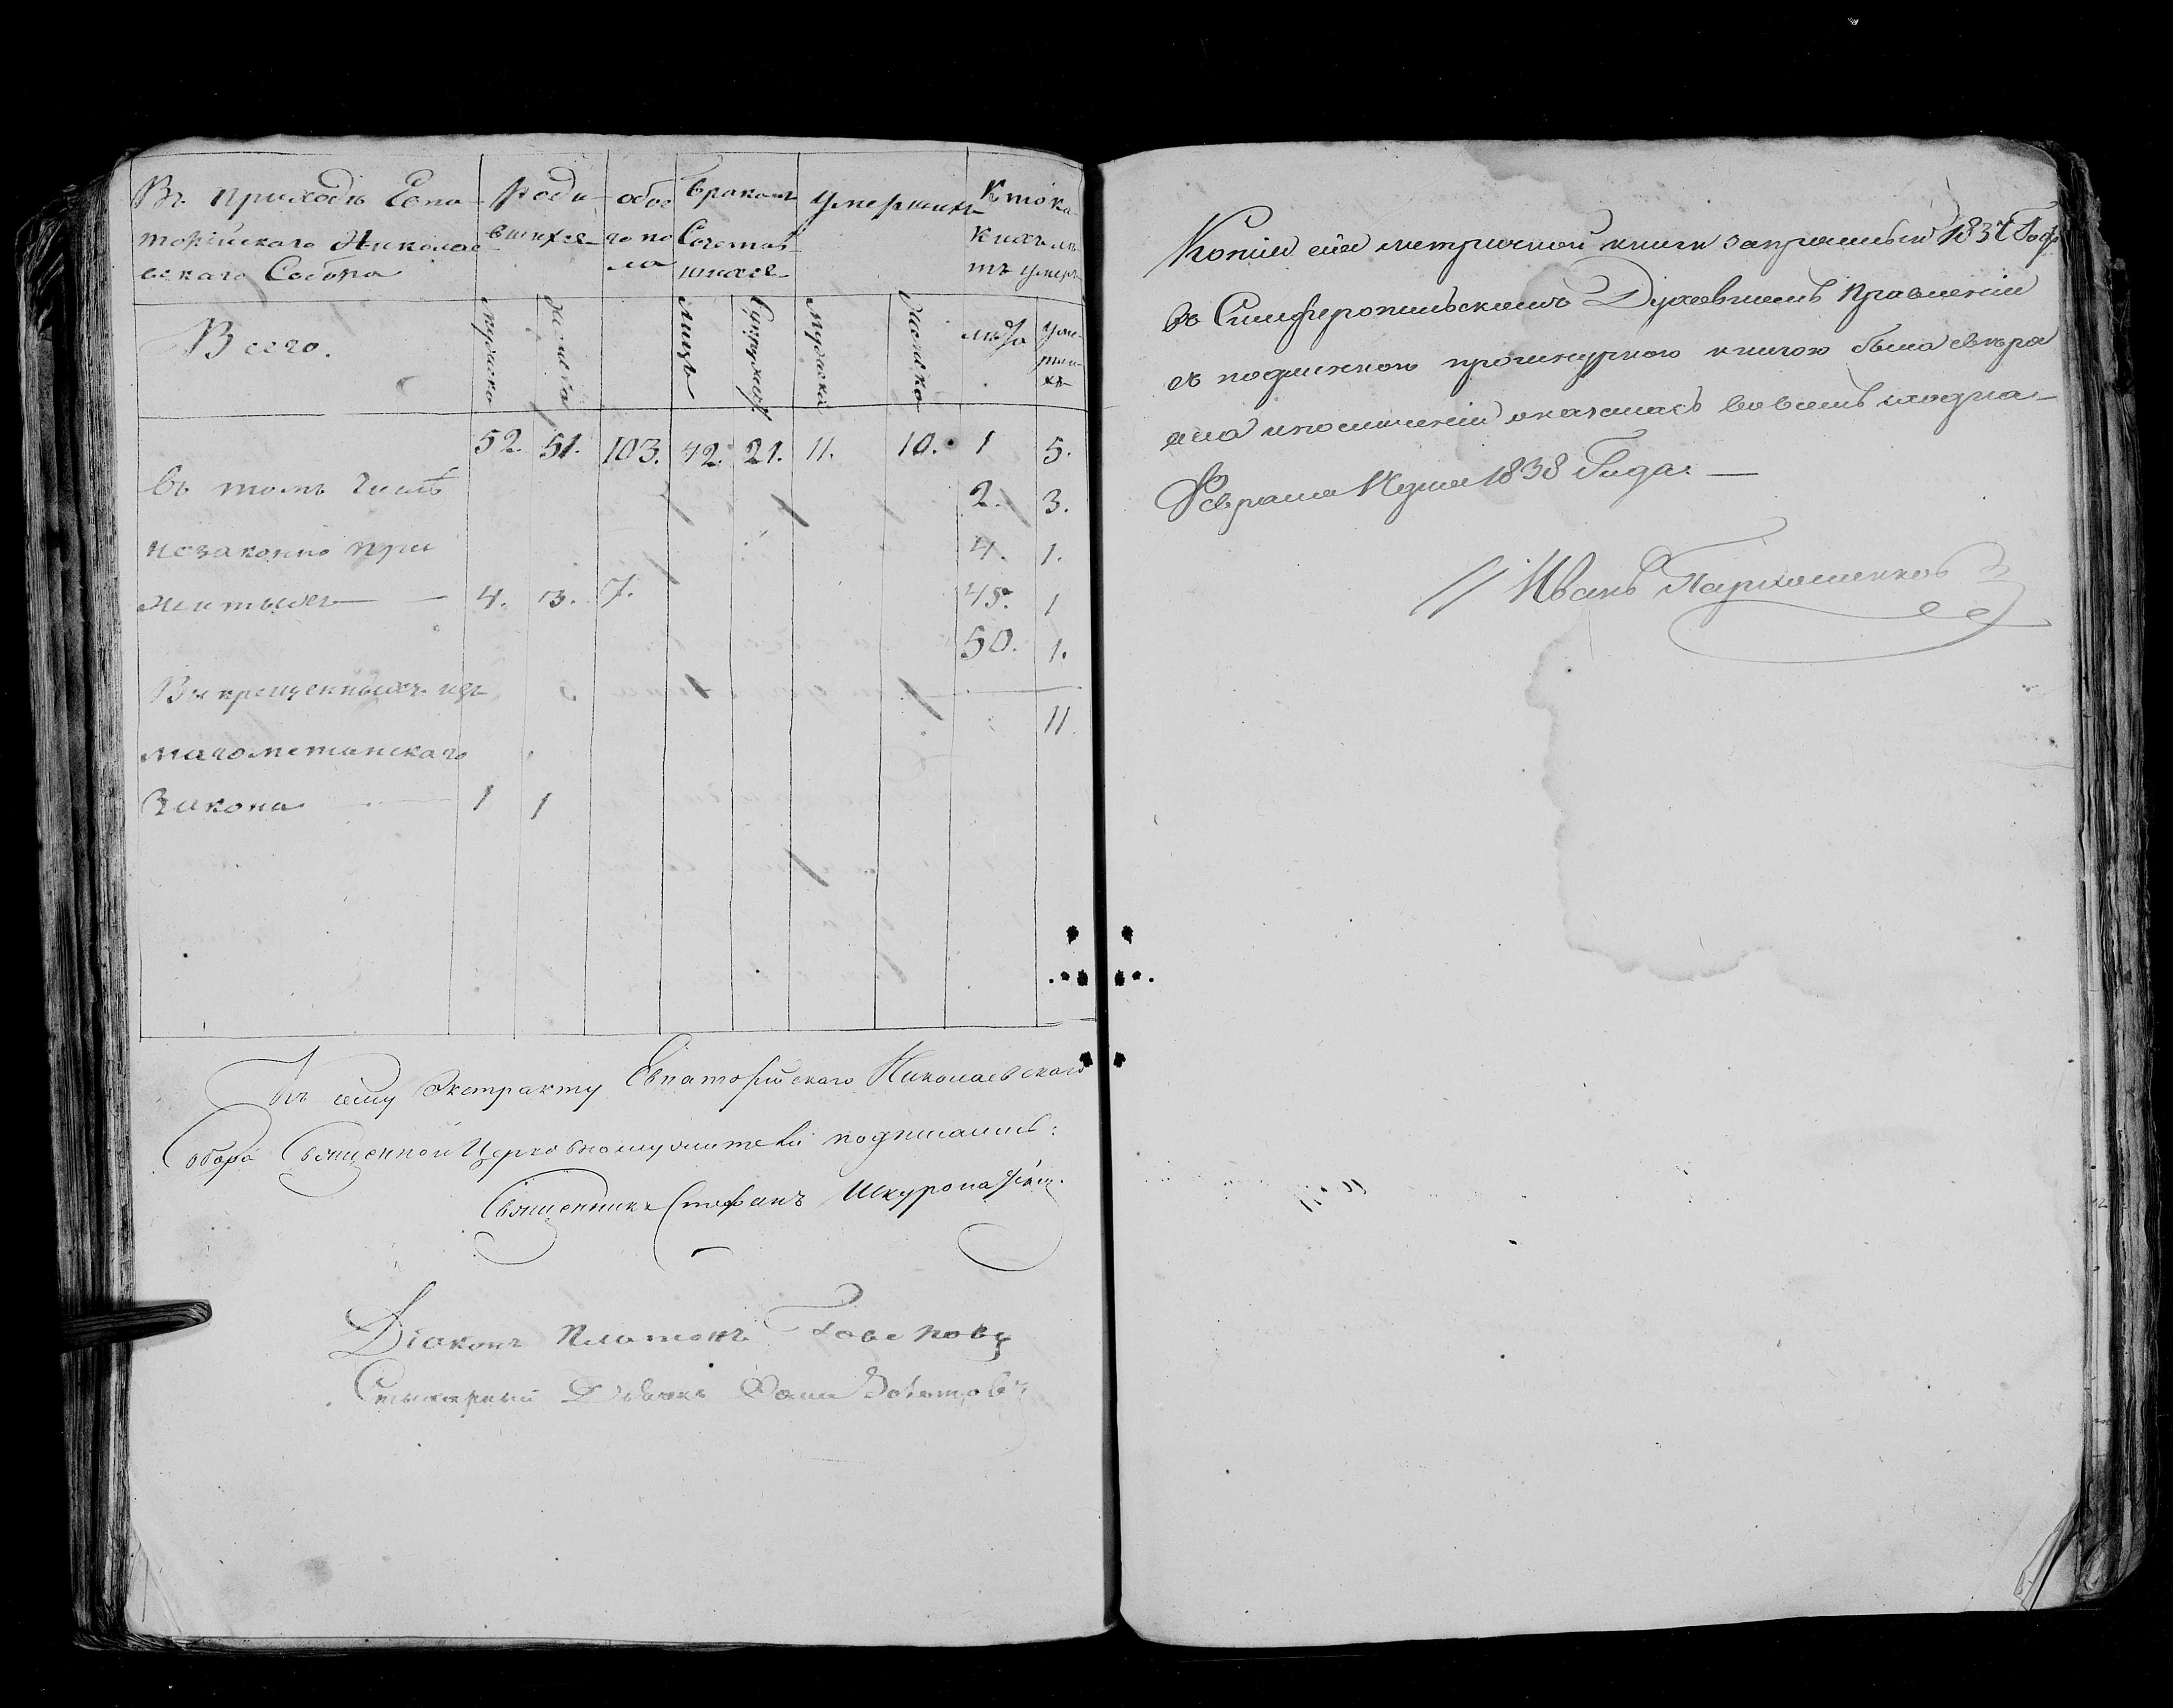 Въ приходѣ Евпа-
торійскаго Николае
вскаго Собора
Роди-
вшихся
обое
го по
ла
бракомъ
Сочетав
шихся
Умершихъ
Кто ка
кихъ лѣ
тъ умеръ
Всего.
мужеска
женска
Лицъ
Супружес.
Мужеска
Женска
лѣта
Уме-
рши-
хъ
52. 51. 103. 42. 21. 11. 10. 1 5.
Въ томъ числѣ 2. 3.
незаконно при 4. 1.
житыхъ — 4. 3. 7. 45. 1
50. 1.
Выкрещенныхъ изъ
11
магометанскаго
Закона — 1 1
Къ сему Экстракту Евпаторійскаго Николаевскаго
Собора Священной Церковнослужители подписались:
Священникъ Стефанъ Шкуропа
Діаконъ Платонъ
Стихарный Дьячокъ
Копія сія метричной книги запрошлый 1837 Годъ
въ Симферопольскомъ Духовномъ Правленіи
съ подлинною прошнурною книгою была свѣря
ема и по сличеніи оказалась во всемъ сходна-
Февраля дня 1838 Года. —
Иванъ Пархоменковъ